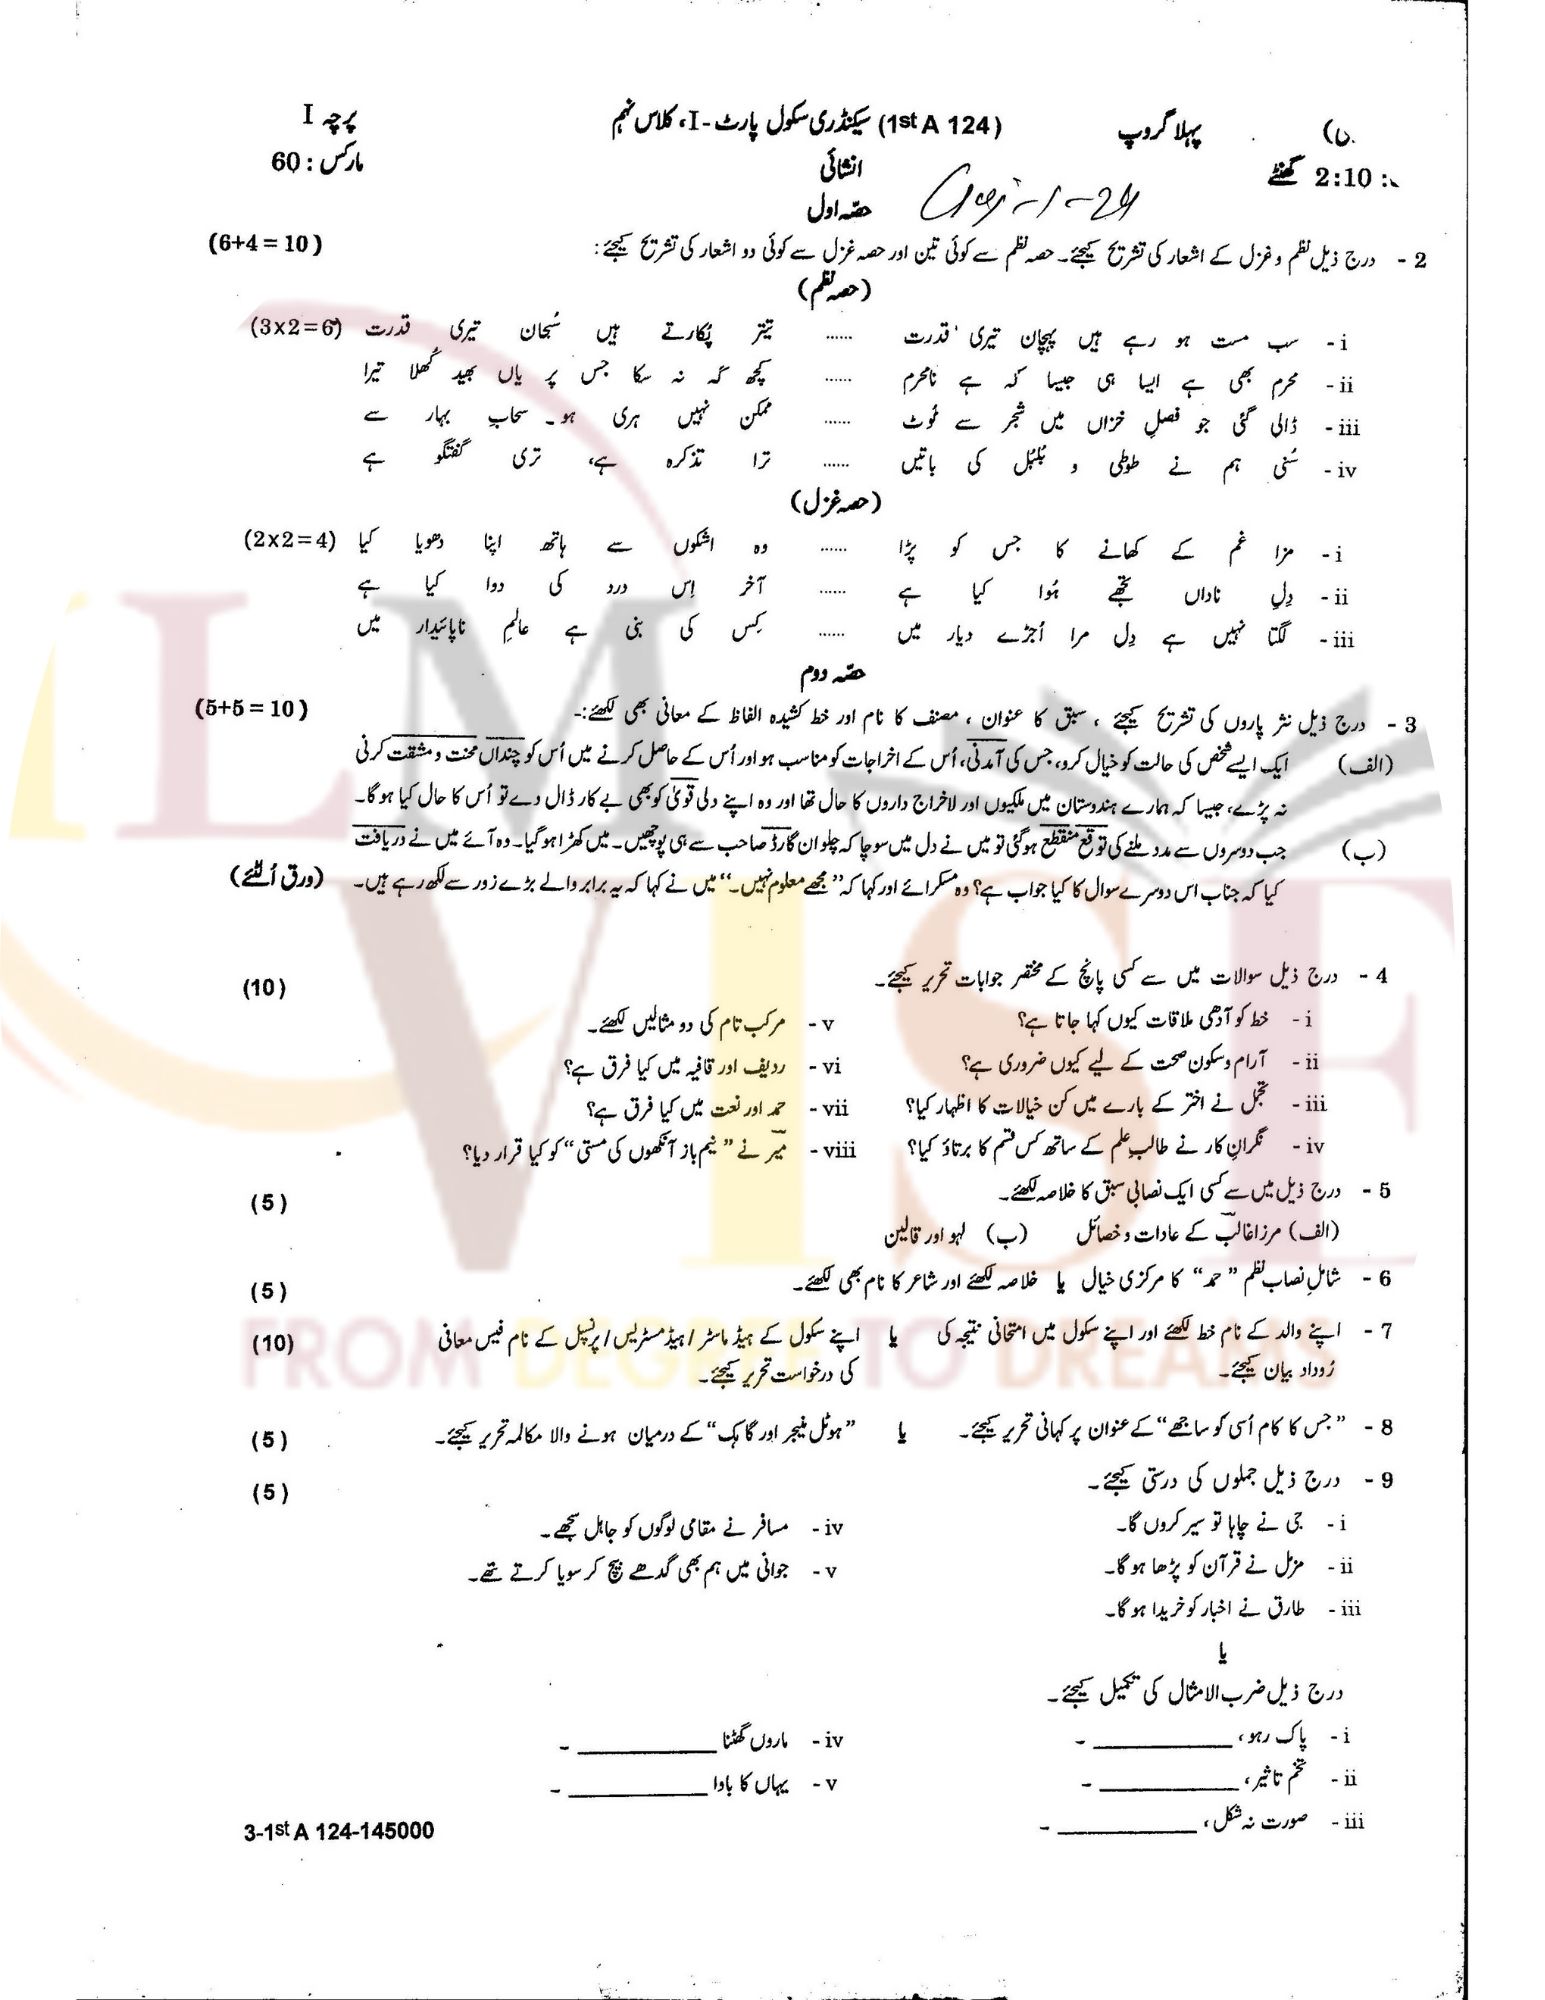 پہلا گروپ (1st A 124) سیکنڈری سکول پارٹ-I، کلاس نہم پرچہ I
2:10 گھنٹے انشائی مارکس : 60
حصّہ اول
2 - درج ذیل نظم و غزل کے اشعار کی تشریح کیجئے۔ حصہ نظم سے کوئی تین اور حصہ غزل سے کوئی دو اشعار کی تشریح کیجئے: (6+4 = 10)
(حصہ نظم)
i - سب مست ہو رہے ہیں پہچان تیری قدرت ...... تیتر پُکارتے ہیں سُبحان تیری قدرت (3x2=6)
ii - محرم بھی ہے ایسا ہی جیسا کہ ہے نامحرم ...... کچھ کہ نہ سکا جس پر یاں بھید کُھلا تیرا
iii - ڈالی گئی جو فصلِ خزاں میں شجر سے ٹوٹ ...... ممکن نہیں ہری ہو۔ سحابِ بہار سے
iv - سُنی ہم نے طوطی و بُلبُل کی باتیں ...... ترا تذکرہ ہے، تری گفتگو ہے
(حصہ غزل)
i - مزا غم کے کھانے کا جس کو پڑا ...... وہ اشکوں سے ہاتھ اپنا دھویا کیا (2x2=4)
ii - دِلِ ناداں تجھے ہُوا کیا ہے ...... آخر اِس درد کی دوا کیا ہے
iii - لگتا نہیں ہے دِل مرا اُجڑے دیار میں ...... کِس کی بنی ہے عالمِ ناپائیدار میں
حصّہ دوم
3 - درج ذیل نثر پاروں کی تشریح کیجئے ، سبق کا عنوان ، مصنف کا نام اور خط کشیدہ الفاظ کے معانی بھی لکھئے:- (5+5 = 10)
(الف) ایک ایسے شخص کی حالت کو خیال کرو، جس کی آمدنی، اُس کے اخراجات کو مناسب ہو اور اُس کے حاصل کرنے میں اُس کو چنداں محنت و مشقت کرنی
نہ پڑے، جیسا کہ ہمارے ہندوستان میں ملکیوں اور لاخراج داروں کا حال تھا اور وہ اپنے دلی قویٰ کو بھی بے کار ڈال دے تو اُس کا حال کیا ہو گا۔
(ب) جب دوسروں سے مدد ملنے کی توقع منقطع ہو گئی تو میں نے دل میں سوچا کہ چلو ان گارڈ صاحب سے ہی پوچھیں۔ میں کھڑا ہو گیا۔ وہ آئے میں نے دریافت
کیا کہ جناب اس دوسرے سوال کا کیا جواب ہے؟ وہ مسکرائے اور کہا کہ "مجھے معلوم نہیں۔" میں نے کہا کہ یہ برابر والے بڑے زور سے لکھ رہے ہیں۔ (ورق اُلٹئے)
4 - درج ذیل سوالات میں سے کسی پانچ کے مختصر جوابات تحریر کیجئے۔ (10)
i - خط کو آدھی ملاقات کیوں کہا جاتا ہے؟ v - مرکب تام کی دو مثالیں لکھئے۔
ii - آرام و سکون صحت کے لیے کیوں ضروری ہے؟ vi - ردیف اور قافیہ میں کیا فرق ہے؟
iii - تجمل نے اختر کے بارے میں کن خیالات کا اظہار کیا؟ vii - حمد اور نعت میں کیا فرق ہے؟
iv - نگرانِ کار نے طالب علم کے ساتھ کس قسم کا برتاؤ کیا؟ viii - میر نے "نیم باز آنکھوں کی مستی" کو کیا قرار دیا؟
5 - درج ذیل میں سے کسی ایک نصابی سبق کا خلاصہ لکھئے۔ (5)
(الف) مرزا غالب کے عادات و خصائل (ب) لہو اور قالین
6 - شامل نصاب نظم "حمد" کا مرکزی خیال یا خلاصہ لکھئے اور شاعر کا نام بھی لکھئے۔ (5)
7 - اپنے والد کے نام خط لکھئے اور اپنے سکول میں امتحانی نتیجہ کی یا اپنے سکول کے ہیڈ ماسٹر/ہیڈ مسٹریس/پرنسپل کے نام فیس معافی (10)
رُوداد بیان کیجئے۔ کی درخواست تحریر کیجئے۔
8 - "جس کا کام اُسی کو ساجھے" کے عنوان پر کہانی تحریر کیجئے۔ یا "ہوٹل منیجر اور گاہک" کے درمیان ہونے والا مکالمہ تحریر کیجئے۔ (5)
9 - درج ذیل جملوں کی درستی کیجئے۔ (5)
i - جی نے چاہا تو سیر کروں گا۔ iv - مسافر نے مقامی لوگوں کو جاہل سمجھے۔
ii - مزمل نے قرآن کو پڑھا ہو گا۔ v - جوانی میں ہم بھی گدھے بیچ کر سویا کرتے تھے۔
iii - طارق نے اخبار کو خریدا ہو گا۔
یا
درج ذیل ضرب الامثال کی تکمیل کیجئے۔
i - پاک رہو، ________ ۔ iv - ماروں گھٹنا ________ ۔
ii - تخم تاثیر، ________ ۔ v - یہاں کا باوا ________ ۔
iii - صورت نہ شکل، ________ ۔
3-1st A 124-145000
LM
VISE
FROM DEGREE TO DREAMS